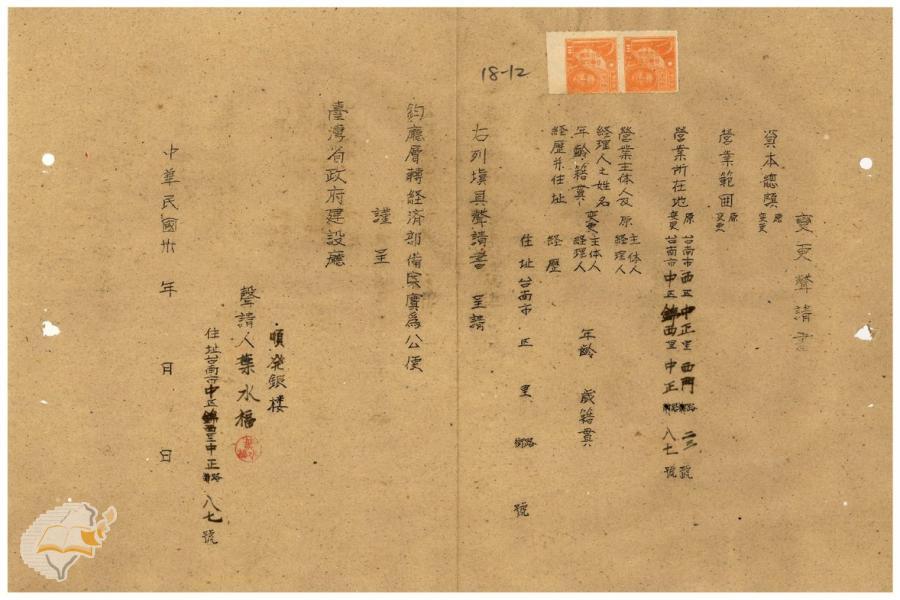 變更聲請書
資本總額 原 變更
營業範囲 原 變更
營業所在地 原 台南市西区中正里西門街路二三號
變更 台南市中正区錦西里中正街路八七號
營業主体人及 原 主体人 經理人
經理人之姓名
年齡籍貫 變更 主体人 經理人 年齡 歲籍貫
經歷并住址 經歷
住址台南市 区 里 街路 號
右列塡具聲請書 呈請
鈞廳層轉經済部備案實為公便
謹呈
臺灣省政府建設廳
順発銀楼
聲請人葉水福
住址台南市中区錦西里中正街路八七號
中華民國卅 年 月 日
18-12